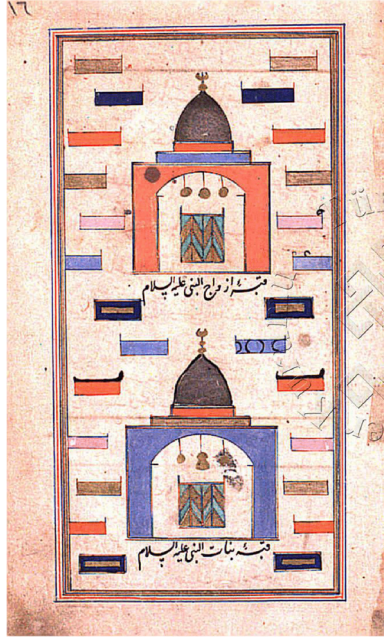 ١٦
قبة ازواج النبی علیه السلام
قبة بنات النبی علیه السلام